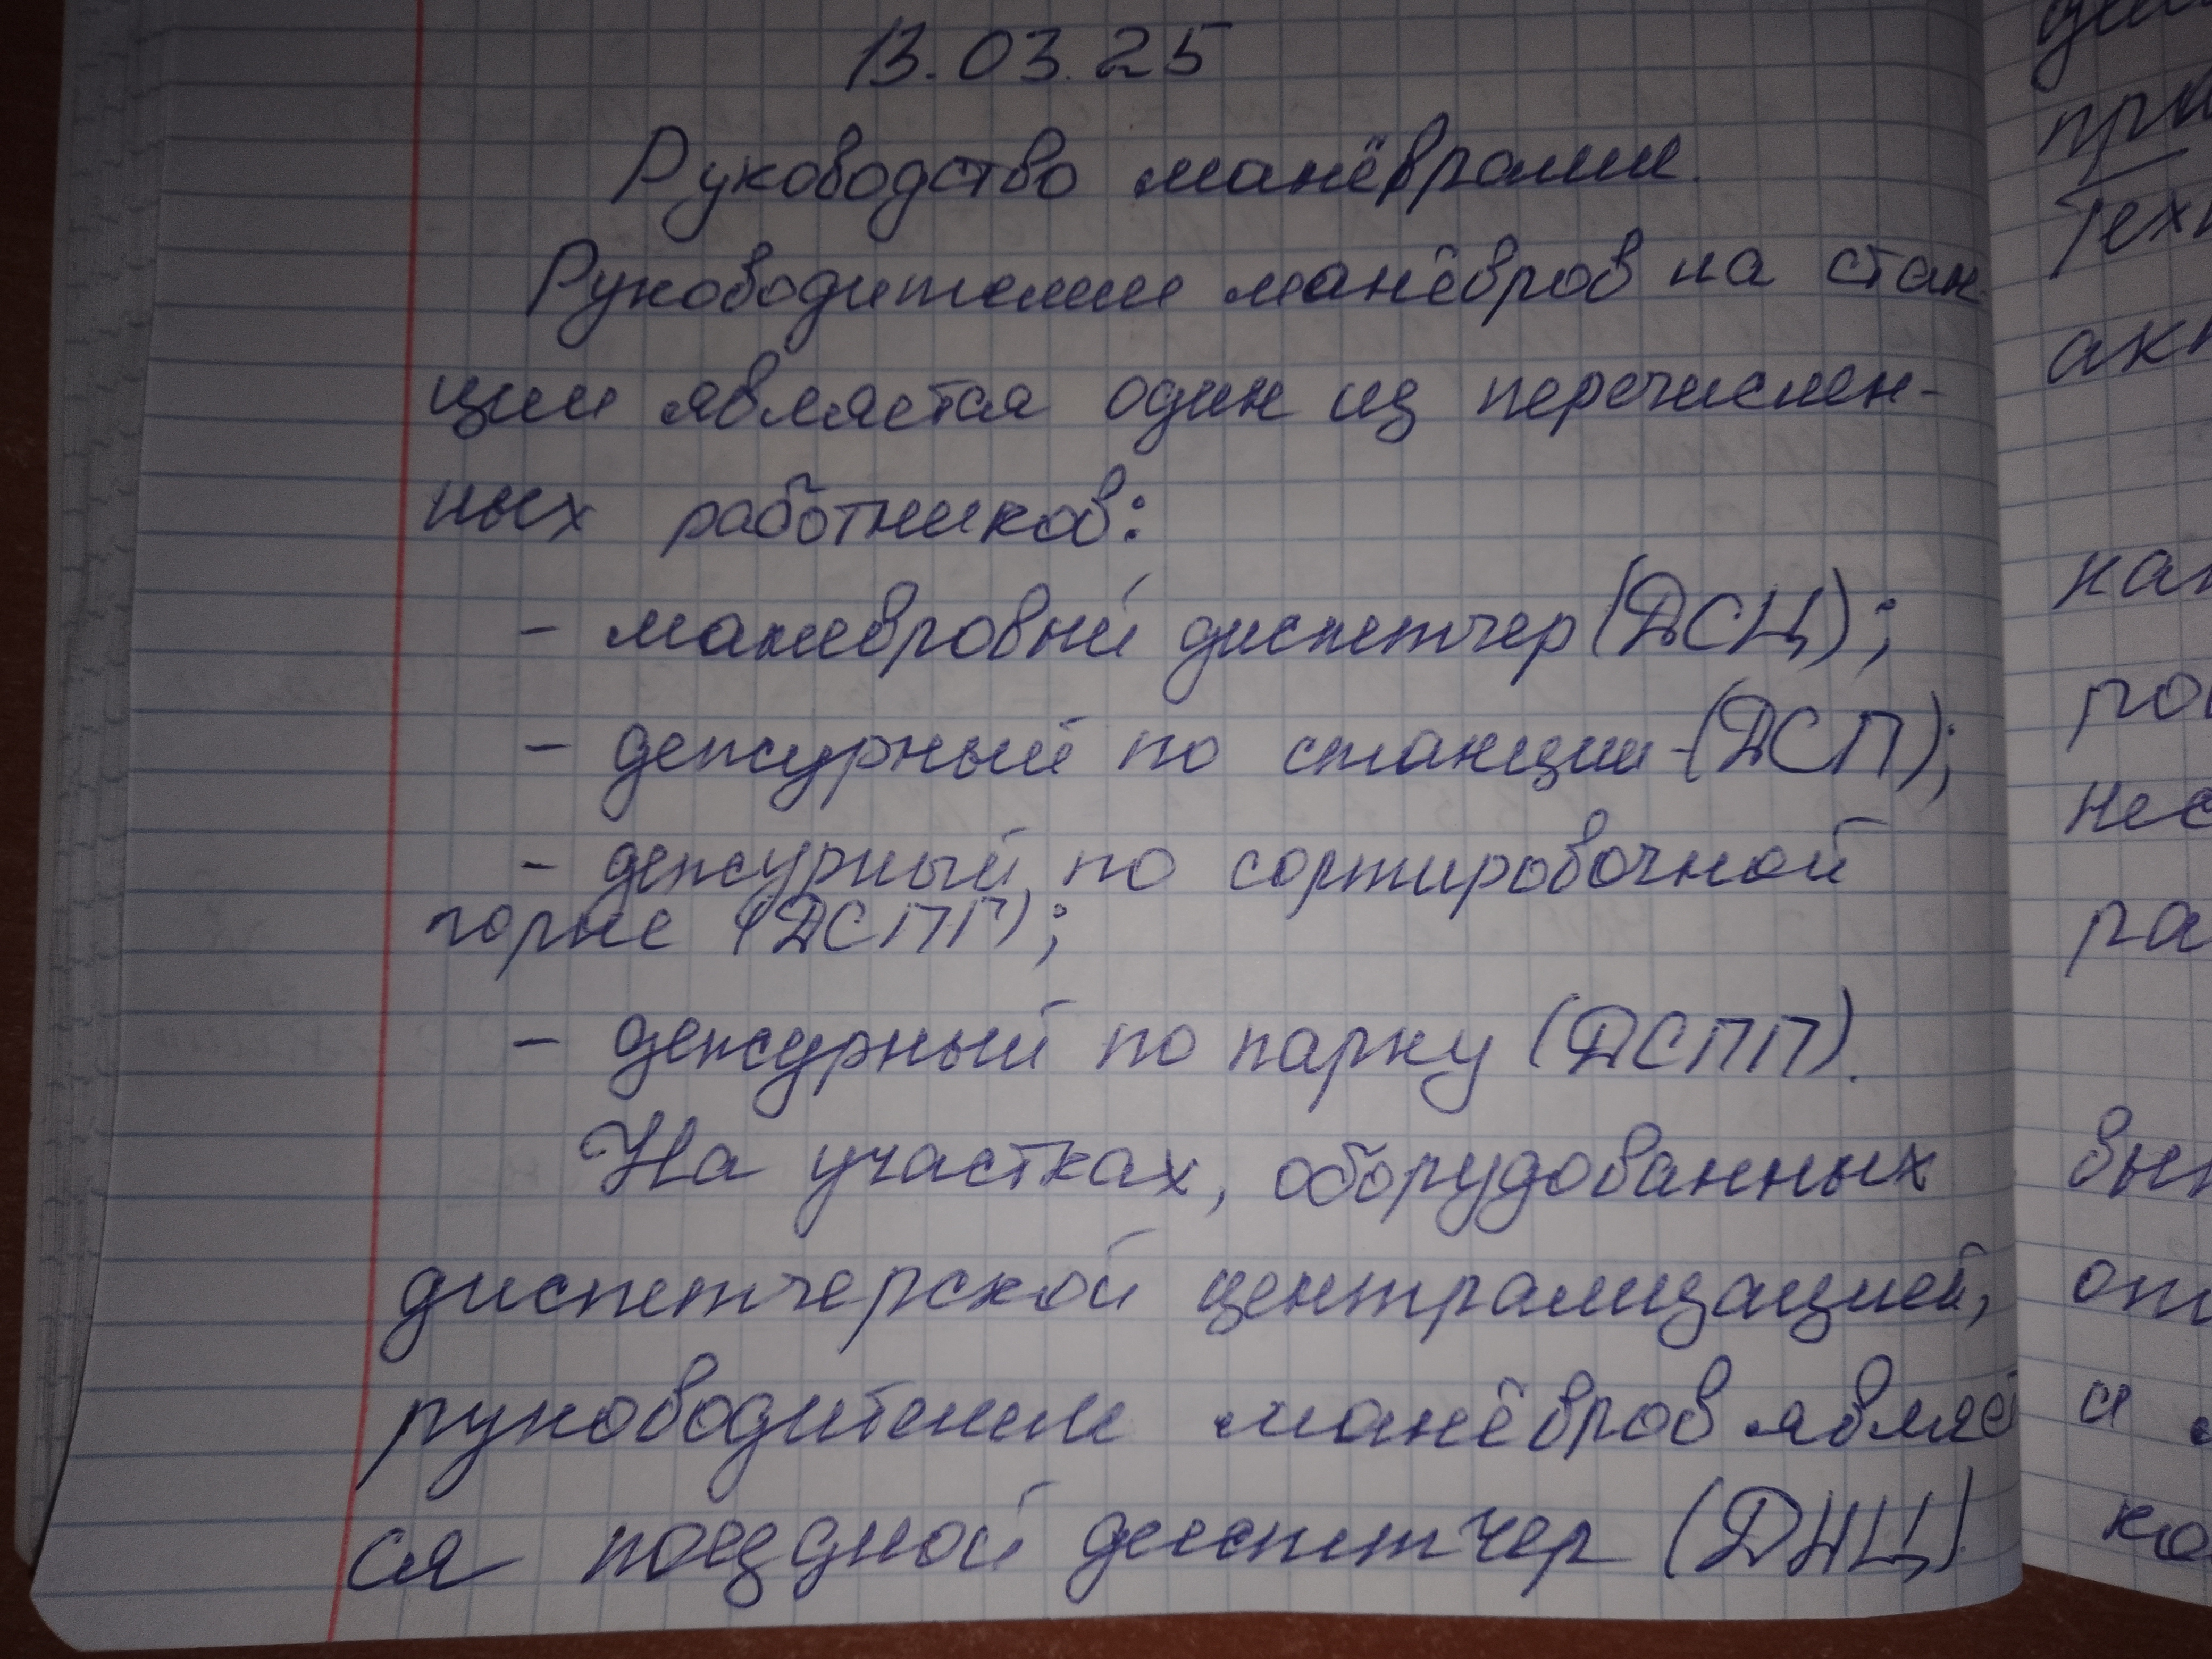 13.03.25
Руководство манёврами.
Руководителем манёвров на стан-
ции является один из перечислен-
ных работников:
- маневровый диспетчер (ДСЦ);
- дежурный по станции-(ДСП);
- дежурный по сортировочной
горке (ДСПГ);
- дежурный по парку (ДСПП).
На участках, оборудованных
диспетчерской централизацией,
руководителем манёвров являет
ся поездной диспетчер (ДНЦ).